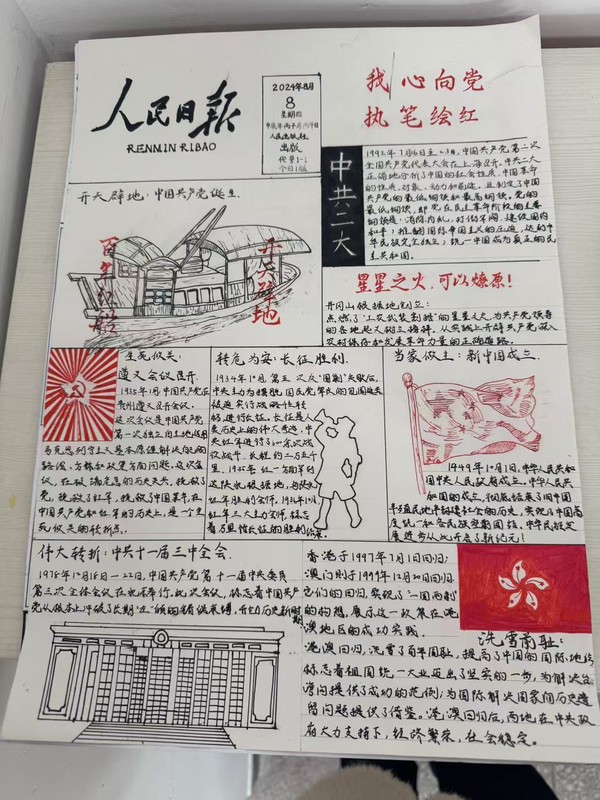 人民日报
RENMIN RIBAO
2024年8月
8
星期四
人民出版社
出版
代号1-1
今日1版
我心向党
执笔绘红
中共二大
1992年7月16日至23日,中国共产党第二次
全国共产党代表大会在上海召开。中共二大
正确地分析了中国的社会性质,中国革命
的性质、对象、动力和前途,且制定了中国
共产党的最低纲领和最高纲领。党的
最低纲领,即党在民主革命阶段的主要
纲领是:消除内乱,打倒军阀,建设国内
和平;推翻国际帝国主义的压迫,达到中
华民族完全独立;统一中国成为真正的民
主共和国。
开天辟地:中国共产党诞生.
百年红船
开天辟地
星星之火,可以燎原!
井冈山根据地创立:
点燃了"工农武装割据"的星星之火,为共产党领导
的各地起义树立榜样,从实践上开辟共产党深入
农村保存和发展革命力量的正确道路.
生死攸关:
遵义会议召开.
1935年1月中国共产党在
贵州遵义召开会议。
这次会议是中国共产党
第一次独立自主地运用
马克思列宁主义基本原理解决自己的
路线、方针和政策方面问题,这次会
议,在极端危急的历史关头,挽救了
党,挽救了红军,挽救了中国革命,在
中国共产党和红军的历史上,是一个生
死攸关的转折点.
转危为安:长征胜利.
1934年10月第五次反"围剿"失败后,
中央主力为摆脱国民党军队的包围追击
被迫实行战略性转
移,进行长征。长征是人
类历史上的伟大奇迹,中
央红军进行了600余次战
役战斗,
1935年
红军三大主力会师,标志
着万里长征的胜利结束.
当家做主:新中国成立.
1949年10月1日,中华人民共和
国中央人民政府成立。中华人民共
和国的成立,彻底结束了旧中国
半殖民地半封建社会的历史,实现了中国高
度统一和各民族空前团结,中华民族发
展进步从此开启了新纪元!
伟大转折:中共十一届三中全会.
1978年12月18日—22日,中国共产党第十一届中央委员
第三次全体会议在北京举行.此次会议,标志着中国共产
党从根本上冲破了长期"左"倾的错误束缚,开启历史新时期
香港于1997年7月1日回归;
澳门则于1999年12月20日回归.
它们的回归,实现了"一国两制"
的构想,展示这一政策在港
澳地区的成功实践.
洗雪前耻:
港澳回归,洗雪了百年国耻,提高了中国的国际地位
标志着祖国统一大业迈出了坚实的一步,为解决台
湾问提供了成功的范例;为国际解决国家间历史遗
留问题提供了借鉴。港澳回归后,两地在中央政
府大力支持下,经济繁荣,社会稳定。